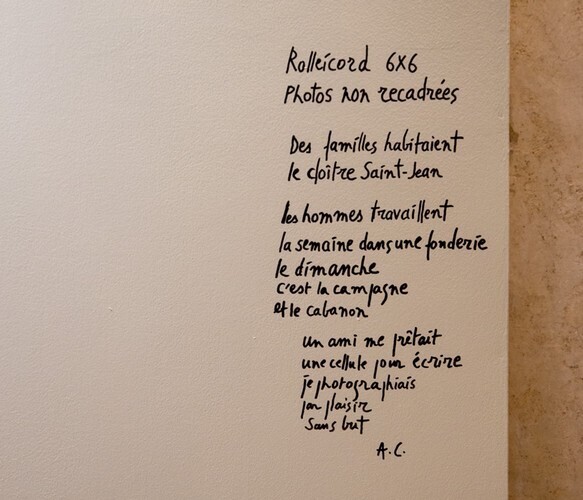 Rolleicord 6x6
Photos non recadrées
Des familles habitaient
le cloître Saint-Jean
les hommes travaillent
la semaine dans une fonderie
le dimanche
c'est la campagne
et le cabanon
un ami me prêtait
une cellule pour écrire
je photographiais
par plaisir
sans but
A.C.